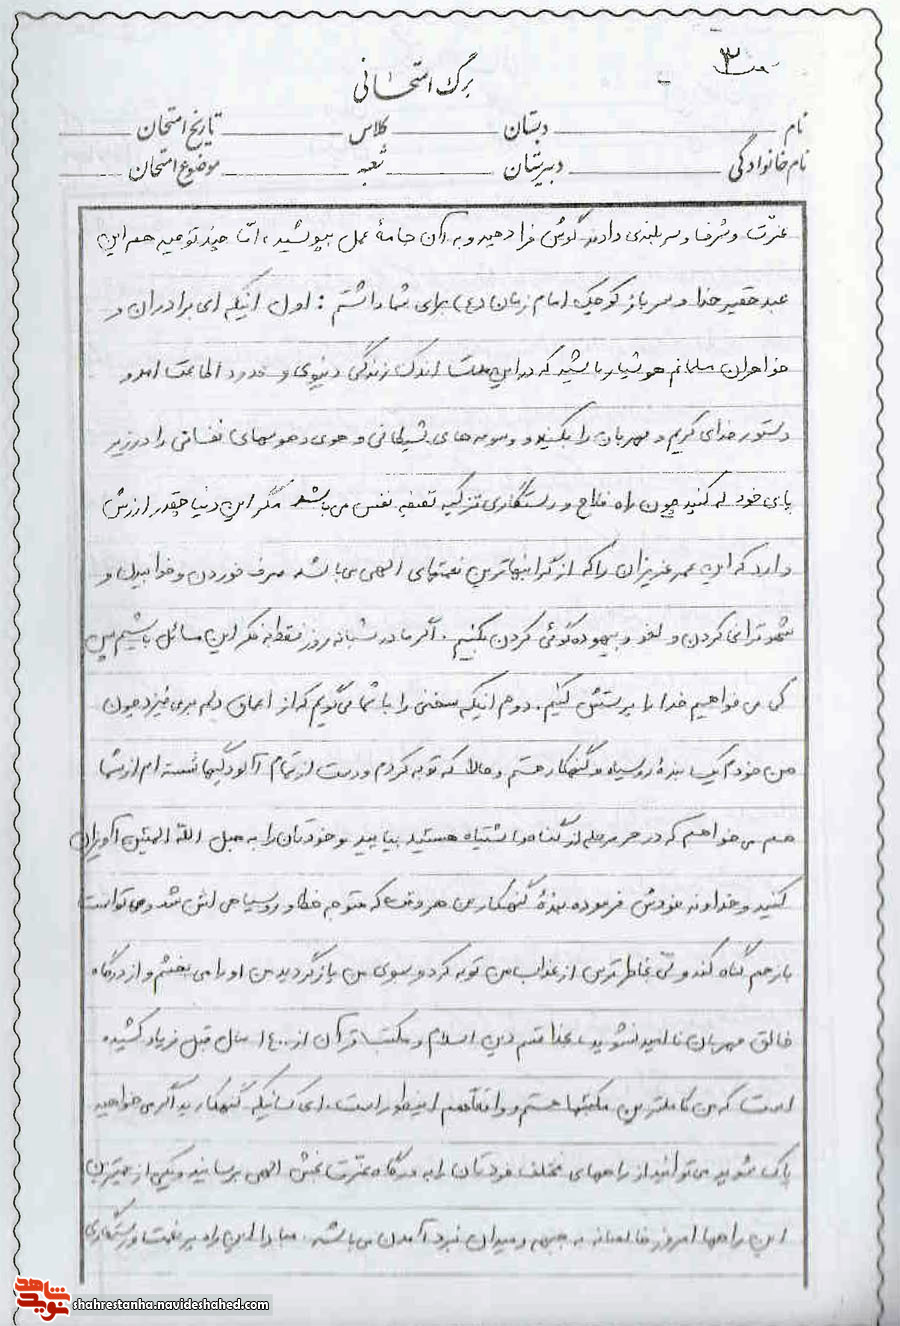 ۳
برگ امتحانی
نام دبستان کلاس تاریخ امتحان
نام خانوادگی دبیرستان شعبه موضوع امتحان
عزت و شرف و سربلندی دارند گوش فرا دهید و به آن جامهٔ عمل بپوشید، امّا چند توصیه هم این
عبد حقیر خدا و سرباز کوچک امام زمان (ع) برای شما داشتم: اول اینکه ای برادران و
خواهران مسلمانم هوشیار باشید که در این مدت اندک زندگی دنیوی و اطاعت امر و
دستور خدای کریم و مهربان را بکنید و وسوسه های شیطانی و هوی و هوسهای نفسانی را در زیر
پای خود له کنید چون راه فلاح و رستگاری تزکیه تصفیه نفس می باشد مگر این دنیا چقدر ارزش
دارد که این عمر عزیزمان را که از گرانبهاترین نعمتهای الهی می باشد صرف خوردن و خوابیدن و
شهوترانی کردن و لغو و بیهوده گوئی کردن بکنیم. اگر ما در شبانه روز فقط به فکر این مسائل باشیم پس
کی می خواهیم خدا را پرستش کنیم. دوم اینکه سخنی را با شما می گویم که از اعماق دلم برمی خیزد چون
من خودم یک بندهٔ روسیاه و گنهکار هستم و حالا که توبه کردم و دست از تمام آلودگیها شسته ام از شما
هم می خواهم که در هر مرحله از گناه و اشتباه هستید بیایید و خودتان را به حبل الله المتین آویزان
کنید و خداوند خودش فرموده بندهٔ گنهکار من هر وقت که متوجه خطا و روسیاهی اش شد و می توانست
باز هم گناه کند ولی بخاطر ترس از عذاب من توبه کرد و بسوی من بازگردید من او را می بخشم و از درگاه
خالق مهربان ناامید نشوید، بخدا قسم دین اسلام و مکتب قرآن از ۱۴۰۰ سال قبل فریاد کشیده
است که من کاملترین مکتبها هستم و واقعاً هم اینطور است. ای کسانیکه گنهکارید اگر می خواهید
پاک شوید می توانید از راههای مختلف خودتان را به درگاه عزت بخش الهی برسانید و یکی از بهترین
این راهها امروز خالصانه به جبهه و میدان نبرد آمدن می باشد. مبادا این راه پر نعمت و رستگاری
نوید شاهد
shahrestanha.navideshahed.com